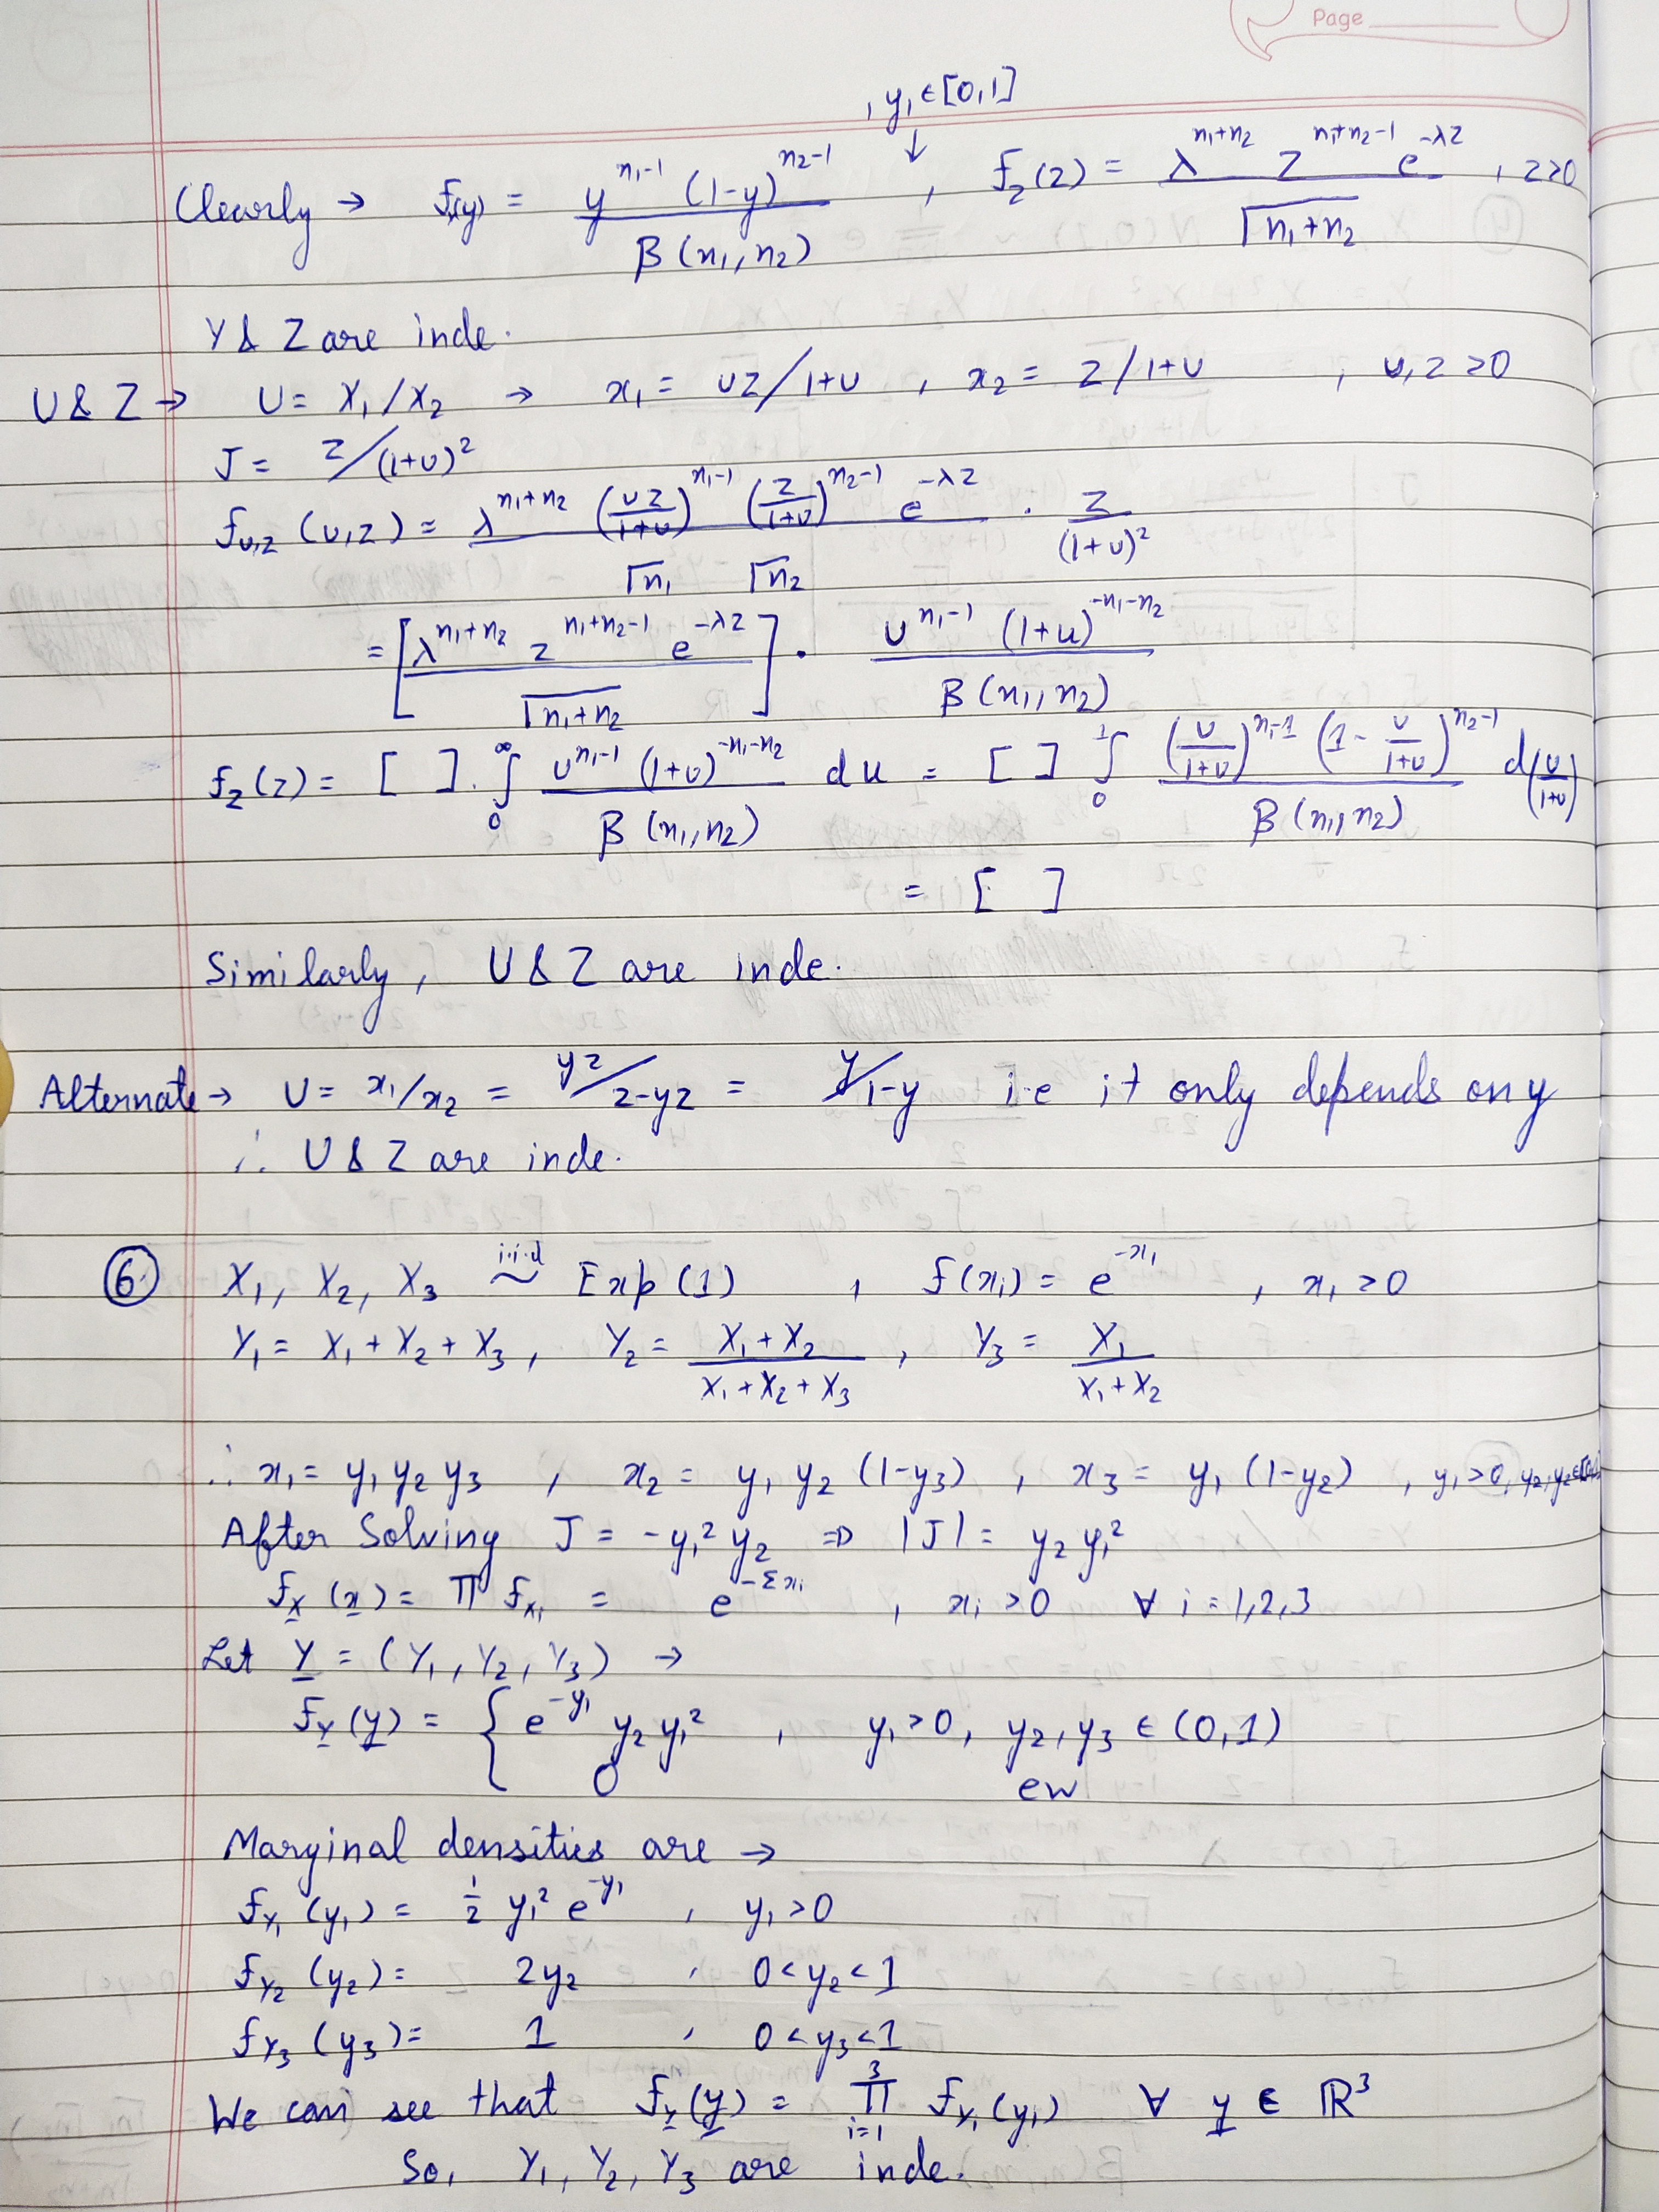 Page
, y₁ ∈ [0,1]
↓
Clearly → f(y) = y^(n₁-1) (1-y)^(n₂-1) / β(n₁,n₂) , f_Z(z) = λ^(n₁+n₂) z^(n₁+n₂-1) e^(-λz) / Γn₁+n₂ , z>0
Y & Z are inde.
U & Z → U = X₁/X₂ → x₁ = uz/1+u , x₂ = z/1+u , u,z >0
J = z/(1+u)²
f_U,Z (u,z) = λ^(n₁+n₂) (uz/1+u)^(n₁-1) (z/1+u)^(n₂-1) e^(-λz) / Γn₁ Γn₂ · z/(1+u)²
= [λ^(n₁+n₂) z^(n₁+n₂-1) e^(-λz) / Γn₁+n₂] · u^(n₁-1) (1+u)^(-n₁-n₂) / β(n₁,n₂)
f_Z(z) = [ ] · ∫₀^∞ u^(n₁-1) (1+u)^(-n₁-n₂) / β(n₁,n₂) du = [ ] ∫₀¹ (u/1+u)^(n₁-1) (1 - u/1+u)^(n₂-1) / β(n₁,n₂) d(u/1+u)
= [ ]
Similarly, U & Z are inde.
Alternate → U = x₁/x₂ = yz/z-yz = y/1-y i.e it only depends on y
∴ U & Z are inde.
⑥ X₁, X₂, X₃ i.i.d ~ Exp(1) , f(xᵢ) = e^(-xᵢ) , xᵢ >0
Y₁ = X₁ + X₂ + X₃ , Y₂ = X₁+X₂ / X₁+X₂+X₃ , Y₃ = X₁ / X₁+X₂
∴ x₁ = y₁ y₂ y₃ , x₂ = y₁ y₂ (1-y₃) , x₃ = y₁ (1-y₂) , y₁>0,
After Solving J = -y₁² y₂ ⇒ |J| = y₂ y₁²
f_X (x) = Π f_Xᵢ = e^(-Σxᵢ) , xᵢ >0 ∀ i = 1,2,3
Let Y = (Y₁, Y₂, Y₃) →
f_Y (y) = { e^(-y₁) y₂ y₁² , y₁ >0, y₂, y₃ ∈ (0,1)
0 ew
Marginal densities are →
f_Y₁ (y₁) = 1/2 y₁² e^(-y₁) , y₁ >0
f_Y₂ (y₂) = 2y₂ , 0<y₂<1
f_Y₃ (y₃) = 1 , 0<y₃<1
We can see that f_Y(y) = Π_(i=1)^3 f_Yᵢ(yᵢ) ∀ y ∈ ℝ³
So, Y₁, Y₂, Y₃ are inde.